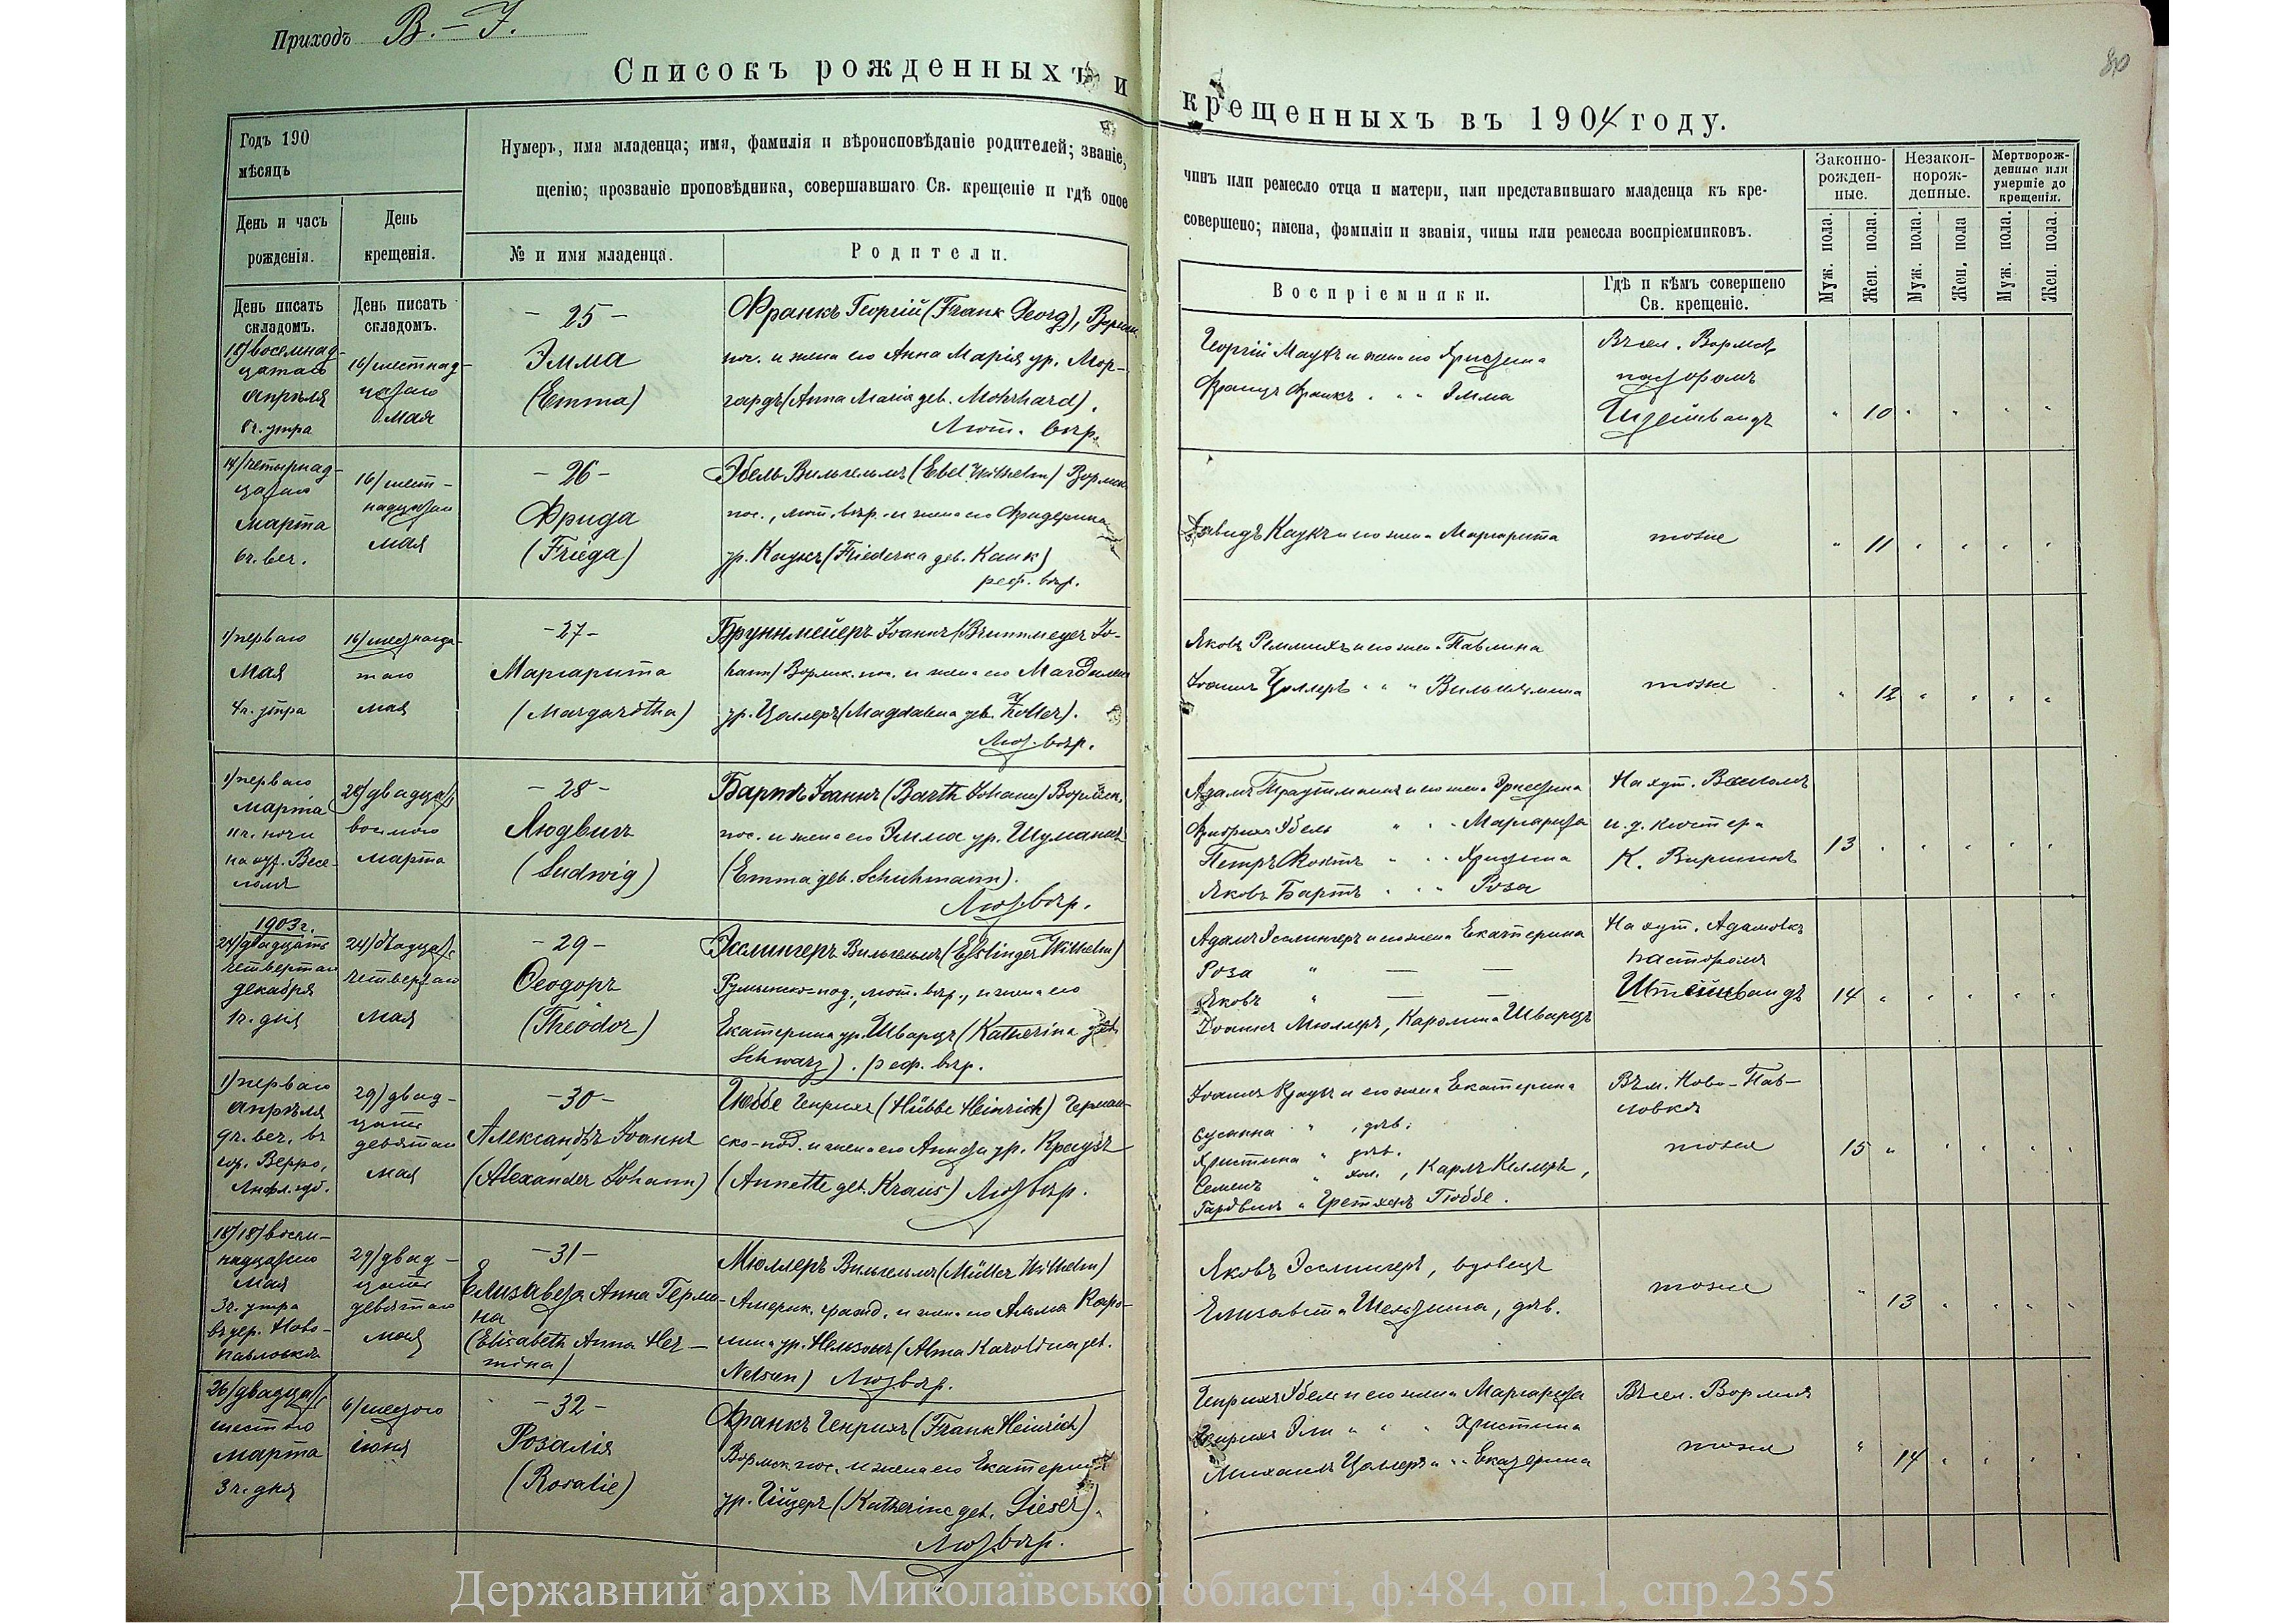 Приходъ В.-I.
80
Списокъ рожденныхъ и крещенныхъ въ 1904 году.
Годъ 190
мѣсяцъ
Нумеръ, имя младенца; имя, фамилія и вѣроисповѣданіе родителей; званіе,
щенію; прозваніе проповѣдника, совершавшаго Св. крещеніе и гдѣ оное
чинъ или ремесло отца и матери, или представившаго младенца къ кре-
совершено; имена, фамиліи и званія, чины или ремесла воспріемниковъ.
Законно-
рожден-
ные.
Незакон-
норож-
денные.
Мертворож-
денные или
умершіе до
крещенія.
День и часъ
рожденія.
День
крещенія.
№ и имя младенца.
Родители.
Воспріемники.
Гдѣ и кѣмъ совершено
Св. крещеніе.
Муж. пола.
Жен. пола.
Муж. пола.
Жен. пола
Муж. пола.
Жен. пола.
День писать
складомъ.
День писать
складомъ.
18/восемнад-
цатаго
апрѣля
8 ч. утра
16/шестнад-
цатаго
мая
-25-
Эмма
(Emma)
Франкъ Георгій (Frank Georg), Вормск.
пос. и жена его Анна Марія ур. Мор-
гардъ (Anna Maria geb. Mohrhard).
Лют. вѣр.
Георгій Маукъ и жена его Христина
Францъ Франкъ " " Эмма
Въ сел. Вормсъ
пасторомъ
Штейнвандъ
" 10 " " " "
14/четырнад-
цатаго
марта
6 ч. веч.
16/шест-
надцатаго
мая
-26-
Фрида
(Frieda)
Эбель Вильгельмъ (Ebel Wilhelm) Вормск.
пос., лют. вѣр. и жена его Фридерика
ур. Каукъ (Friederka geb. Kauk)
реф. вѣр.
Давидъ Каукъ и его жена Маргарита
тоже
" 11 " " " "
1/перваго
мая
4 ч. утра
16/шестнадца-
таго
мая
-27-
Маргарита
(Margaretha)
Бруннмейеръ Іоаннъ (Brunnmeyer Jo-
hann) Вормск. пос. и жена его Магдалена
ур. Цоллеръ (Magdalena geb. Zoller).
Лют. вѣр.
Яковъ Реммихъ и его жена Павлина
Іоаннъ Цоллеръ " " " Вильгельмина
тоже
" 12 " " " "
1/перваго
марта
11 ч. ночи
на хут. Весе-
ломъ
28/двадцать
восьмого
марта
-28-
Людвигъ
(Ludwig)
Бартъ Іоаннъ (Barth Johann) Вормск.
пос. и жена его Эмма ур. Шуманнъ
(Emma geb. Schuhmann).
Лют. вѣр.
Адамъ Траутманнъ и его жена Христина
Фридрихъ Эбель " " " Маргарита
Петръ Фохтъ " " " Христина
Яковъ Бартъ " " " Роза
На хут. Веселомъ
и. д. кюстера
К.
13 " " " " "
1903 г.
24/двадцать
четвертаго
декабря
1 ч. дня
24/двадцать
четвертаго
мая
-29-
Ѳеодоръ
(Theodor)
Эсслингеръ Вильгельмъ (Esslinger Wilhelm)
Румынско-под., лют. вѣр., и жена его
Екатерина ур. Шварцъ (Katherina geb.
Schwarz). реф. вѣр.
Адамъ Эсслингеръ и его жена Екатерина
Роза " — —
Яковъ " — —
Іоаннъ Мюллеръ, Каролина Шварцъ
На хут. Адамовкѣ
пасторомъ
Штейнвандъ
14 " " " " "
1/перваго
апрѣля
9 ч. веч. въ
гор. Верро,
Лифл. губ.
29/двад-
цать
девятаго
мая
-30-
Александръ Іоаннъ
(Alexander Johann)
Гюббе Генрихъ (Hübbe Heinrich) Герман-
ско-под. и жена его Аннета ур. Краузъ
(Annette geb. Kraus) Лют. вѣр.
Іоаннъ Краузъ и его жена Екатерина
Сусанна " , дѣв.
Христина " дѣв.
Семенъ " хол., Карлъ Келлеръ,
Гардвигъ и Гретхенъ Гюббе.
Въ м. Ново-Пав-
ловкѣ
тоже
15 " " " " "
18/18/восем-
надцатаго
мая
3 ч. утра
въ дер. Ново-
павловкѣ
29/двад-
цать
девятаго
мая
-31-
Елизавета Анна Герми-
на
(Elisabeth Anna Her-
mina)
Мюллеръ Вильгельмъ (Müller Wilhelm)
Америк. гражд. и жена его Альма Каро-
лина ур. Нельзонъ (Alma Karolina geb.
Nelson) Лют. вѣр.
Яковъ Эсслингеръ, вдовецъ
Елизавета, дѣв.
тоже
" 13 " " " "
26/двадцать
шестого
марта
3 ч. дня
6/шестого
іюня
-32-
Розалія
(Rosalie)
Франкъ Генрихъ (Frank Heinrich)
Вормск. пос. и жена его Екатерина
ур. (Katherine geb. Dieser).
Лют. вѣр.
Генрихъ Эбель и его жена Маргарита
Генрихъ Эли " " " Христина
Михаилъ Цоллеръ " " Екатерина
Въ сел. Вормсъ
тоже
" 14 " " " "
Державний архів Миколаївської області, ф.484, оп.1, спр.2355